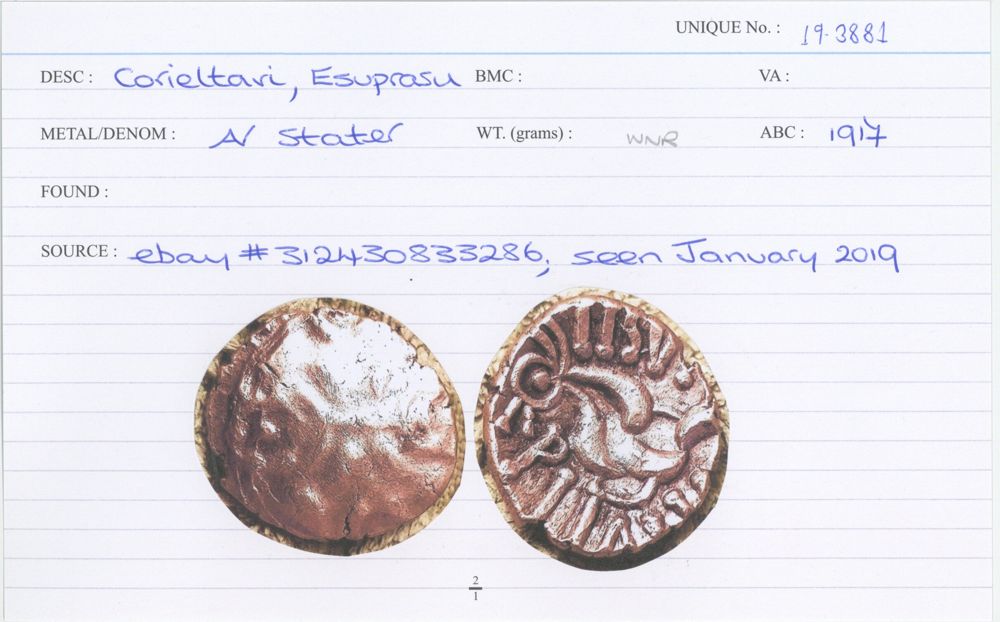 UNIQUE No. : 19.3881
DESC : Corieltavi, Esuprasu BMC : VA :
METAL/DENOM : AV Stater WT. (grams) : WNR ABC : 1917
FOUND :
SOURCE : ebay # 312430833286, seen January 2019
2
1